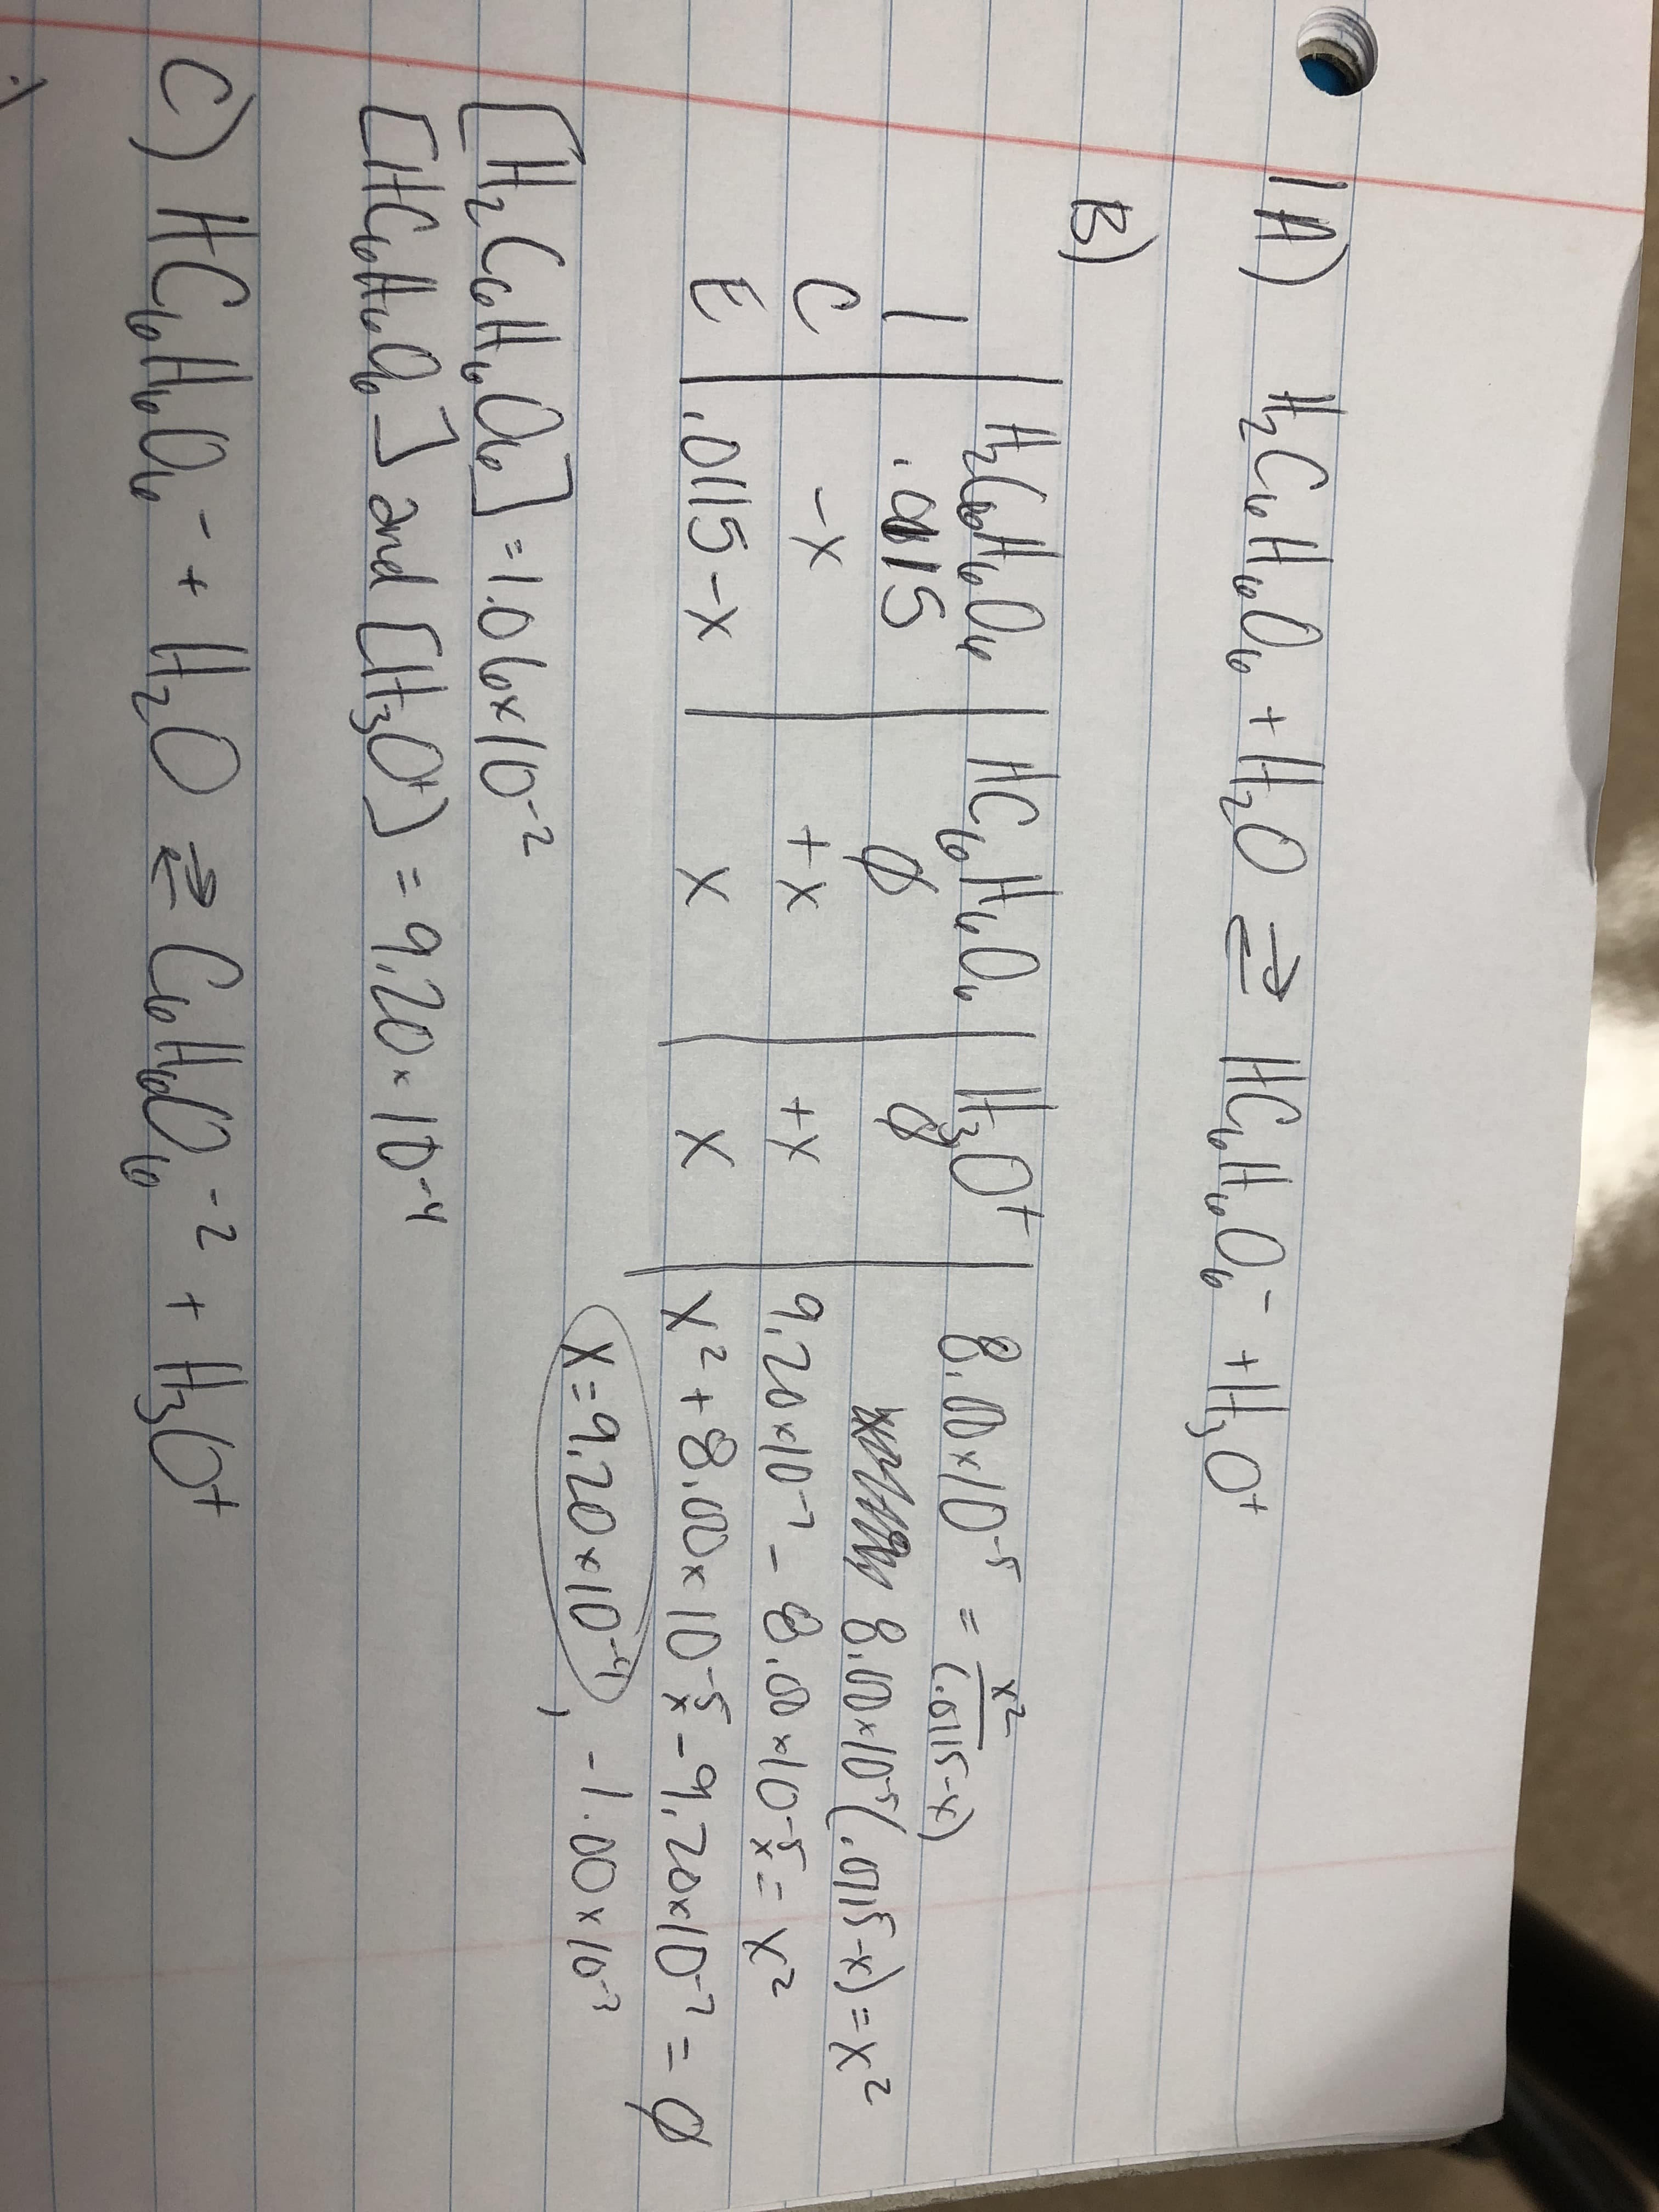 1A) H₂C₆H₆O₆ + H₂O ⇌ HC₆H₆O₆⁻ + H₃O⁺
B)
H₂C₆H₆O₆ | HC₆H₆O₆ | H₃O⁺ | 8.00×10⁻⁵ = x²/(.0115-x)
I | .0115 | Ø | Ø | 8.00×10⁻⁵(.0115-x)=x²
C | -x | +x | +x | 9.20×10⁻⁷ - 8.00×10⁻⁵x = x²
E | .0115-x | x | x | x² + 8.00×10⁻⁵x - 9.20×10⁻⁷ = Ø
x=9.20×10⁻⁴, -1.00×10⁻³
[H₂C₆H₆O₆] = 1.06×10⁻²
[HC₆H₆O₆] and [H₃O⁺] = 9.20×10⁻⁴
C) HC₆H₆O₆⁻ + H₂O ⇌ C₆H₆O₆⁻² + H₃O⁺